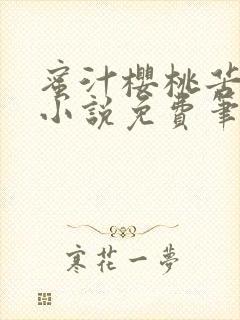 蜜汁櫻桃苦
小説免費筆
寒花一夢